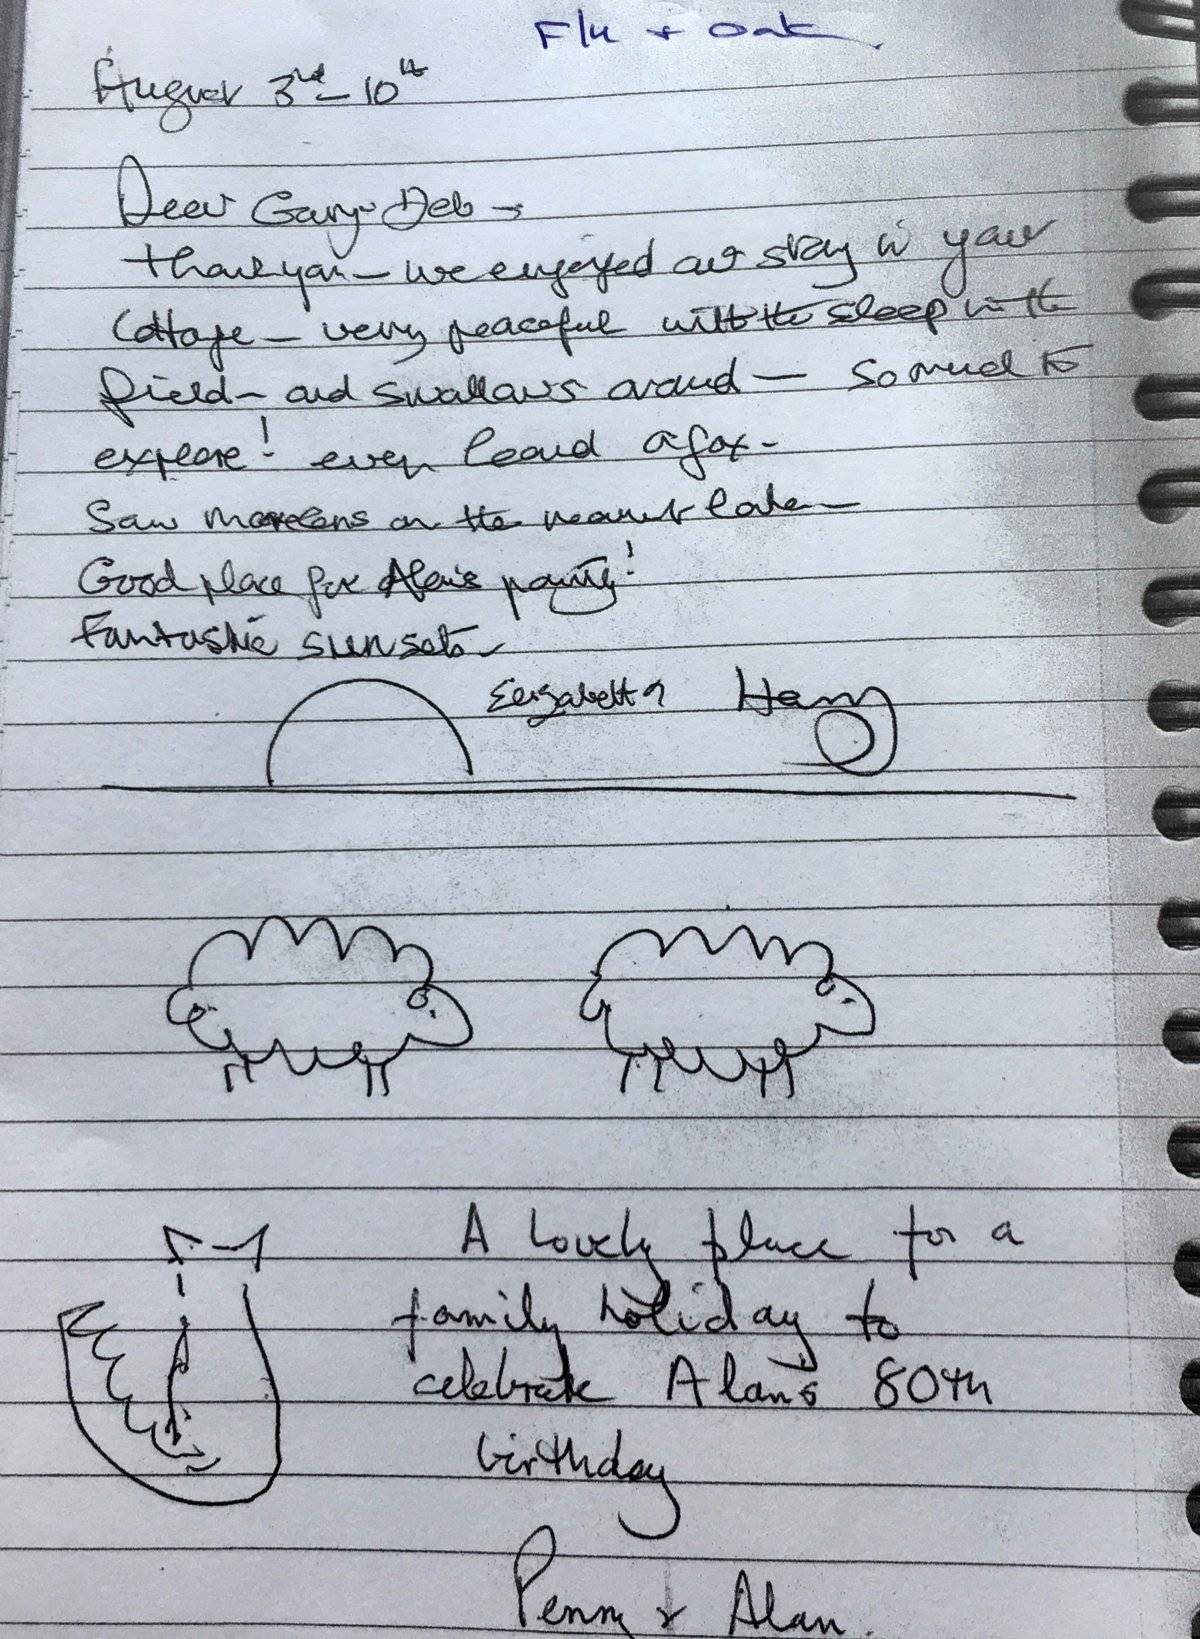 F/H + Oak.
August 3rd - 10th
Dear Gary + Deb -
thankyou - we enjoyed our stay in your
Cottage - very peaceful with the sheep in the
field - and swallows around - So much to
explore! even heard a fox -
Saw on the nearest lake -
Good place for Alan's party!
Fantastic sunsets -
Elizabeth & Henry
A lovely place for a
family holiday to
celebrate Alan's 80th
birthday
Penny & Alan.